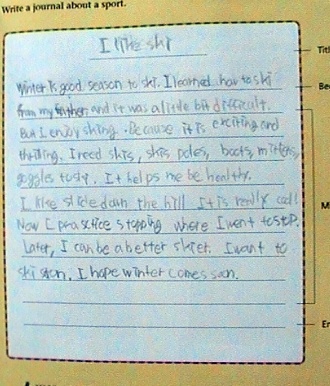 Write a journal about a sport.
I like ski
Winter is good season to ski. I learned how to ski
from my father and it was a little bit difficult.
But I enjoy skiing. Because it is exciting and
thrilling. I need skis, skis poles, boots, mittens,
goggles to ski. It helps me be healthy.
I like slide down the hill It is really cool!
Now I practice stopping where I want to stop.
Later, I can be a better skier. I want to
ski soon. I hope winter comes soon.
Tit
Be
M
En